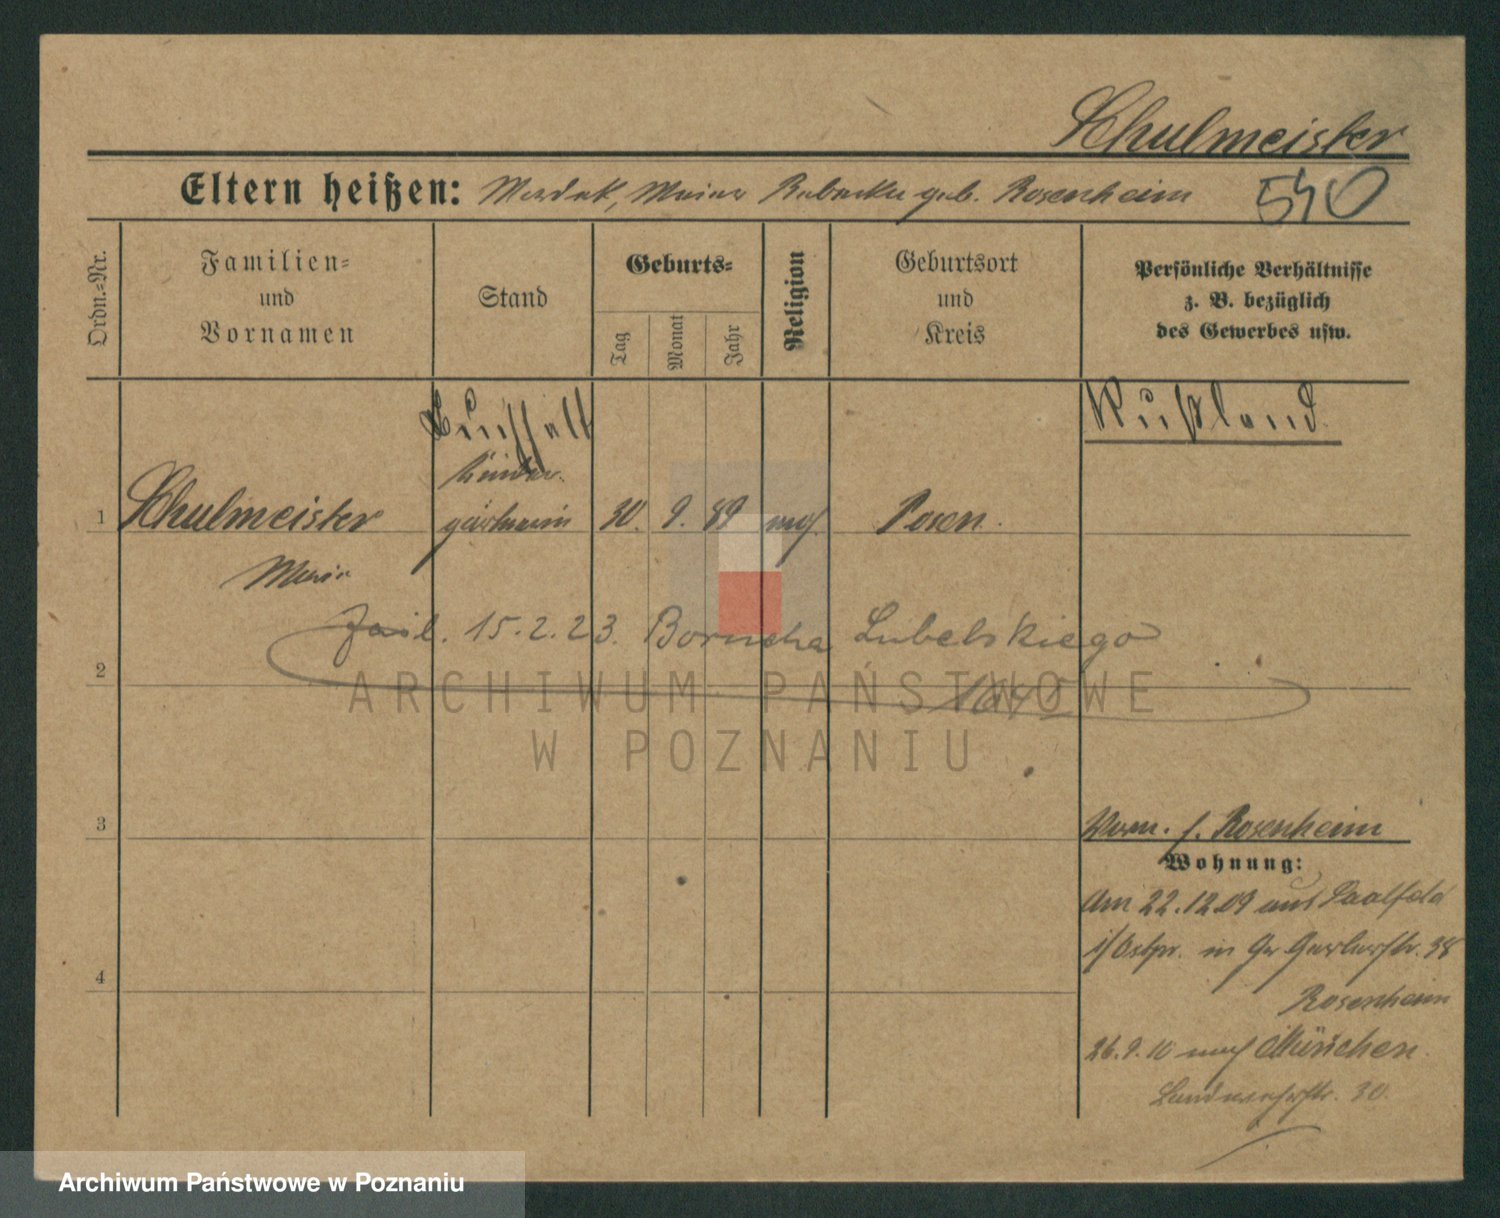 Schulmeister
Eltern heißen: Mordek, Meier Rebecka geb. Rosenheim 540
Ordn.-Nr.
Familien-
und
Vornamen
Stand
Geburts-
Tag
Monat
Jahr
Religion
Geburtsort
und
Kreis
Persönliche Verhältnisse
z. B. bezüglich
des Gewerbes usw.
Rußland
Kinder-
1 Schulmeister gärtnerin 30. 9. 89 Posen.
Marie
15.2.23. Borucha Lubelskiego
2
3
Vorm. f. Rosenheim
Wohnung:
Am 22.12.09 aus Saalfeld
i/Ostpr. in Gr. Gerberstr. 38
4
Rosenheim
26.9.10 nach München.
Landwehrstr. 30.
ARCHIWUM PAŃSTWOWE
W POZNANIU
Archiwum Państwowe w Poznaniu